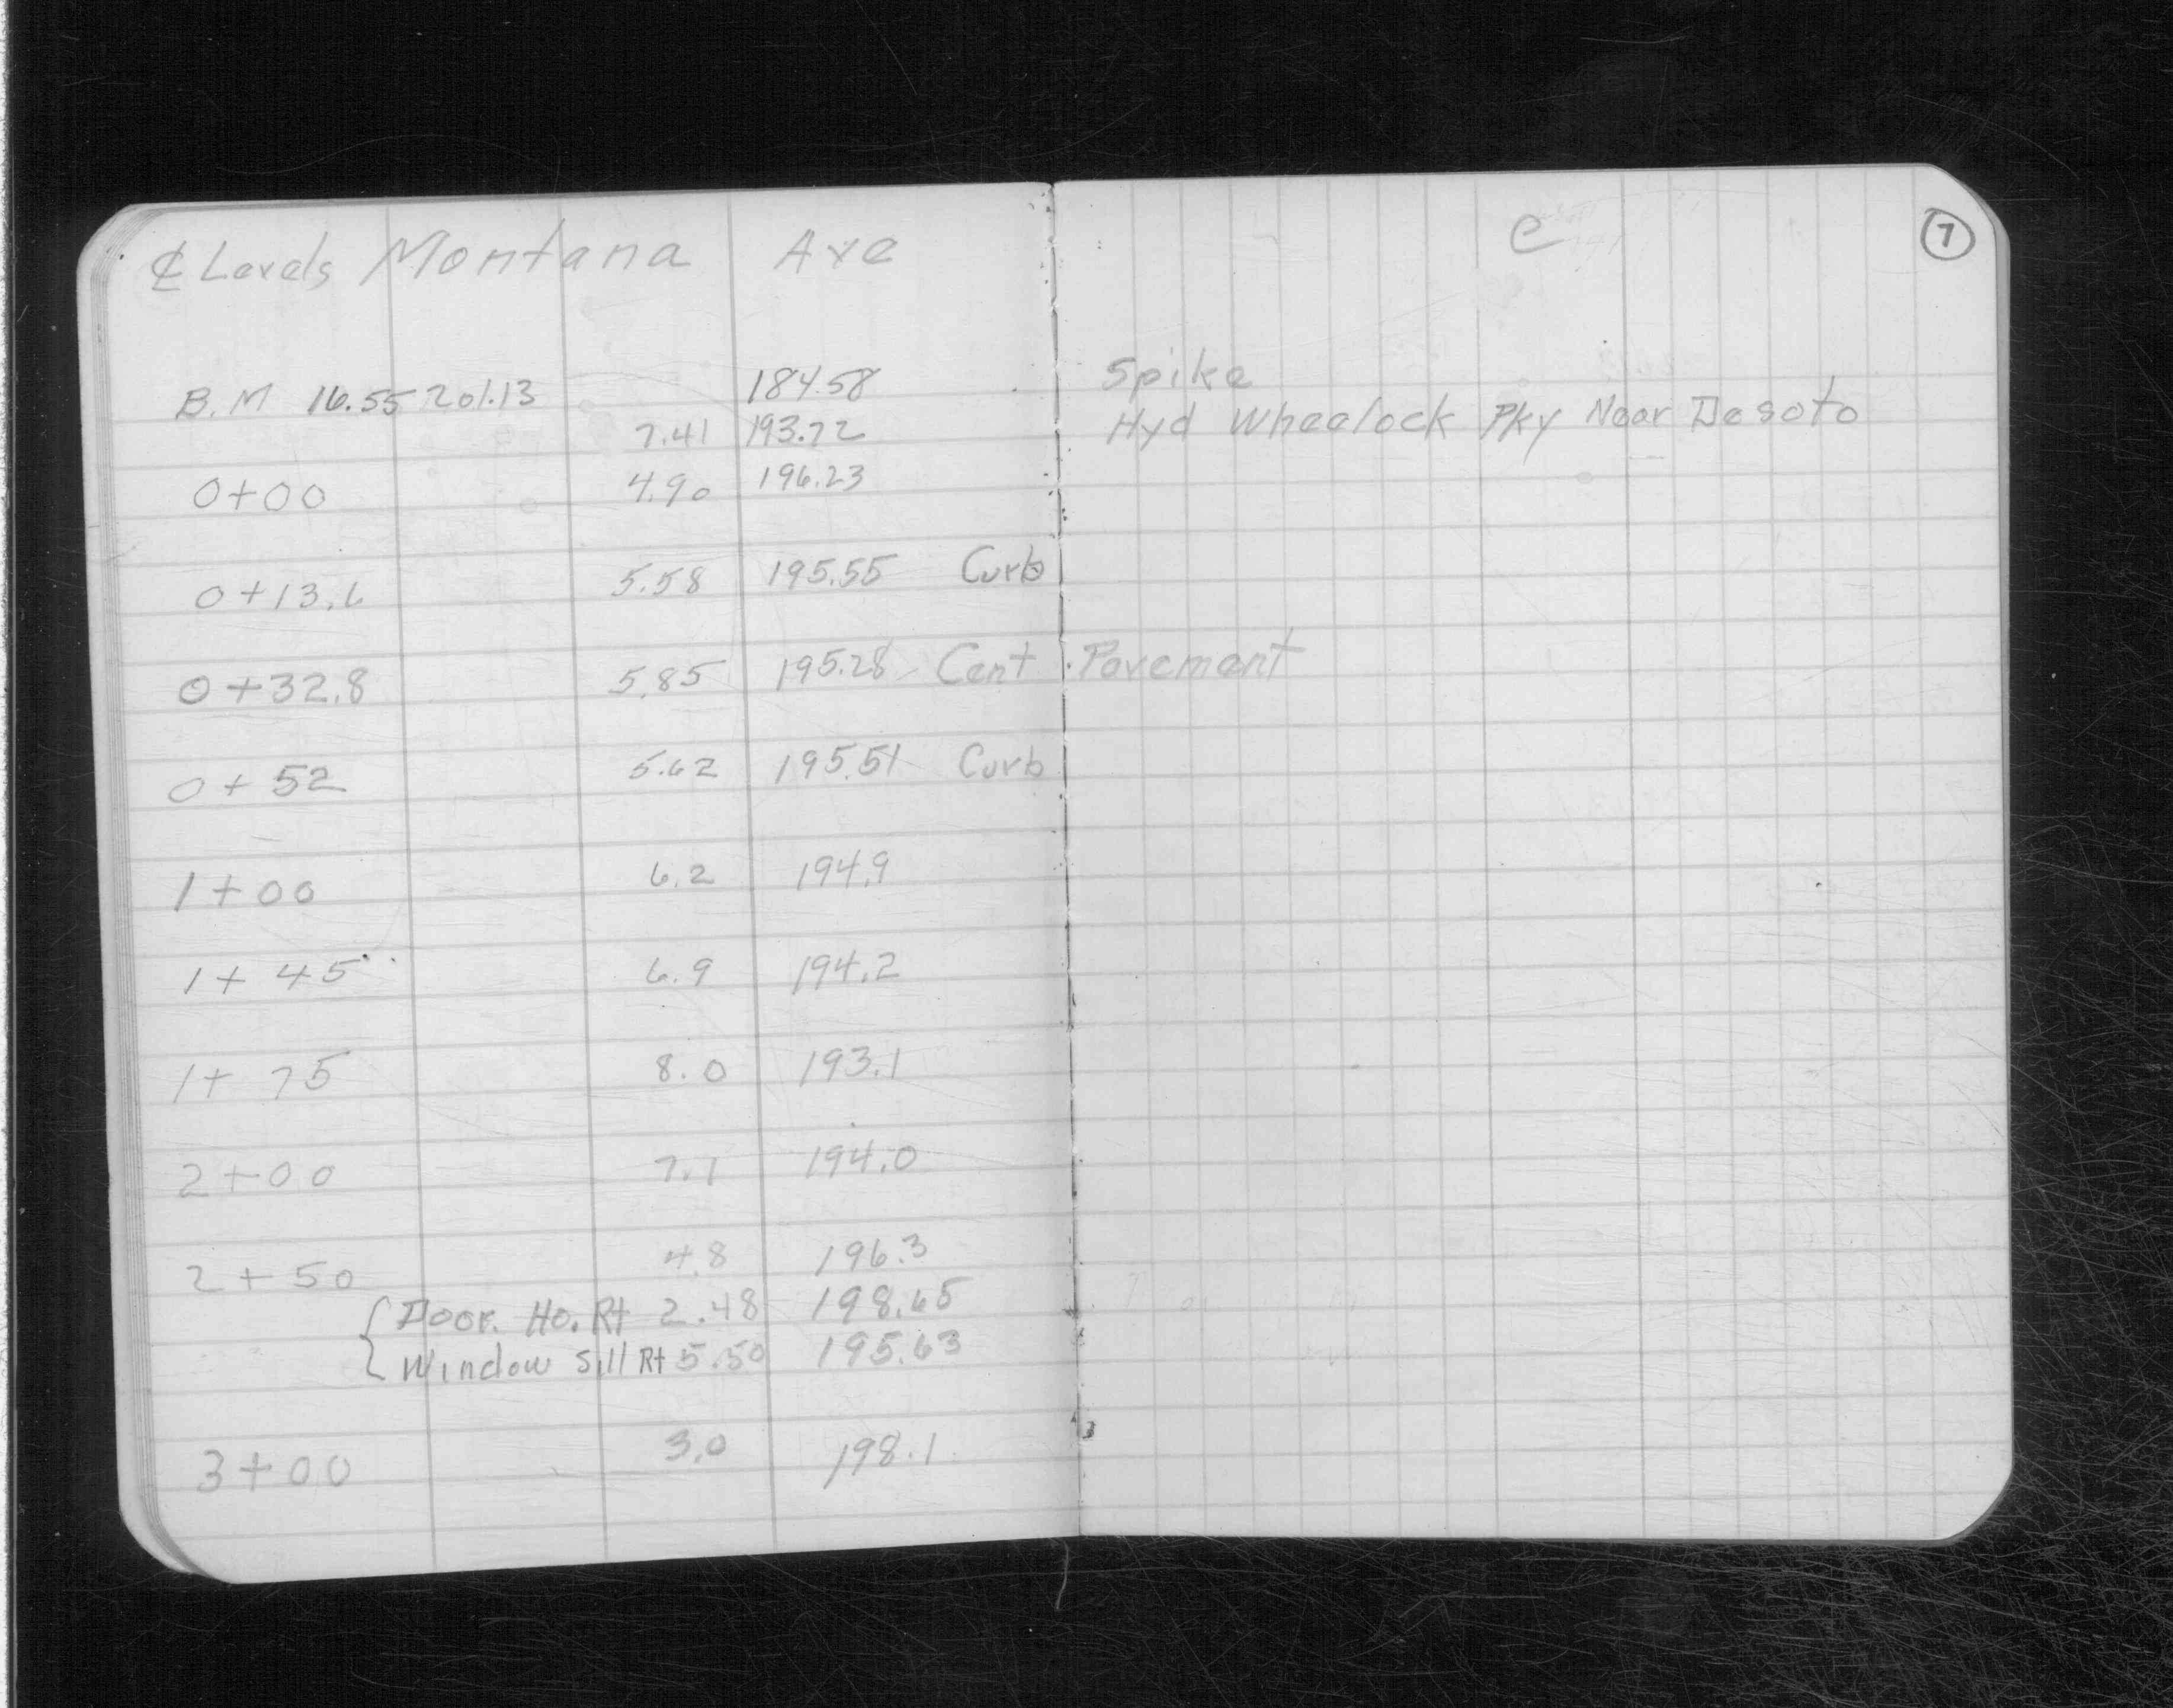 ℄ Levels Montana Ave
e
7
B.M 16.55 201.13 184.58 Spike
7.41 193.72 Hyd Wheelock Pky Near Desoto
0+00 4.90 196.23
0+13.6 5.58 195.55 Curb
0+32.8 5.85 195.28 Cent Pavement
0+52 5.62 195.51 Curb
1+00 6.2 194.9
1+45 6.9 194.2
1+75 8.0 193.1
2+00 7.1 194.0
2+50 4.8 196.3
{Door. Ho. Rt 2.48 198.65
Window Sill Rt 5.50 195.63
3+00 3.0 198.1